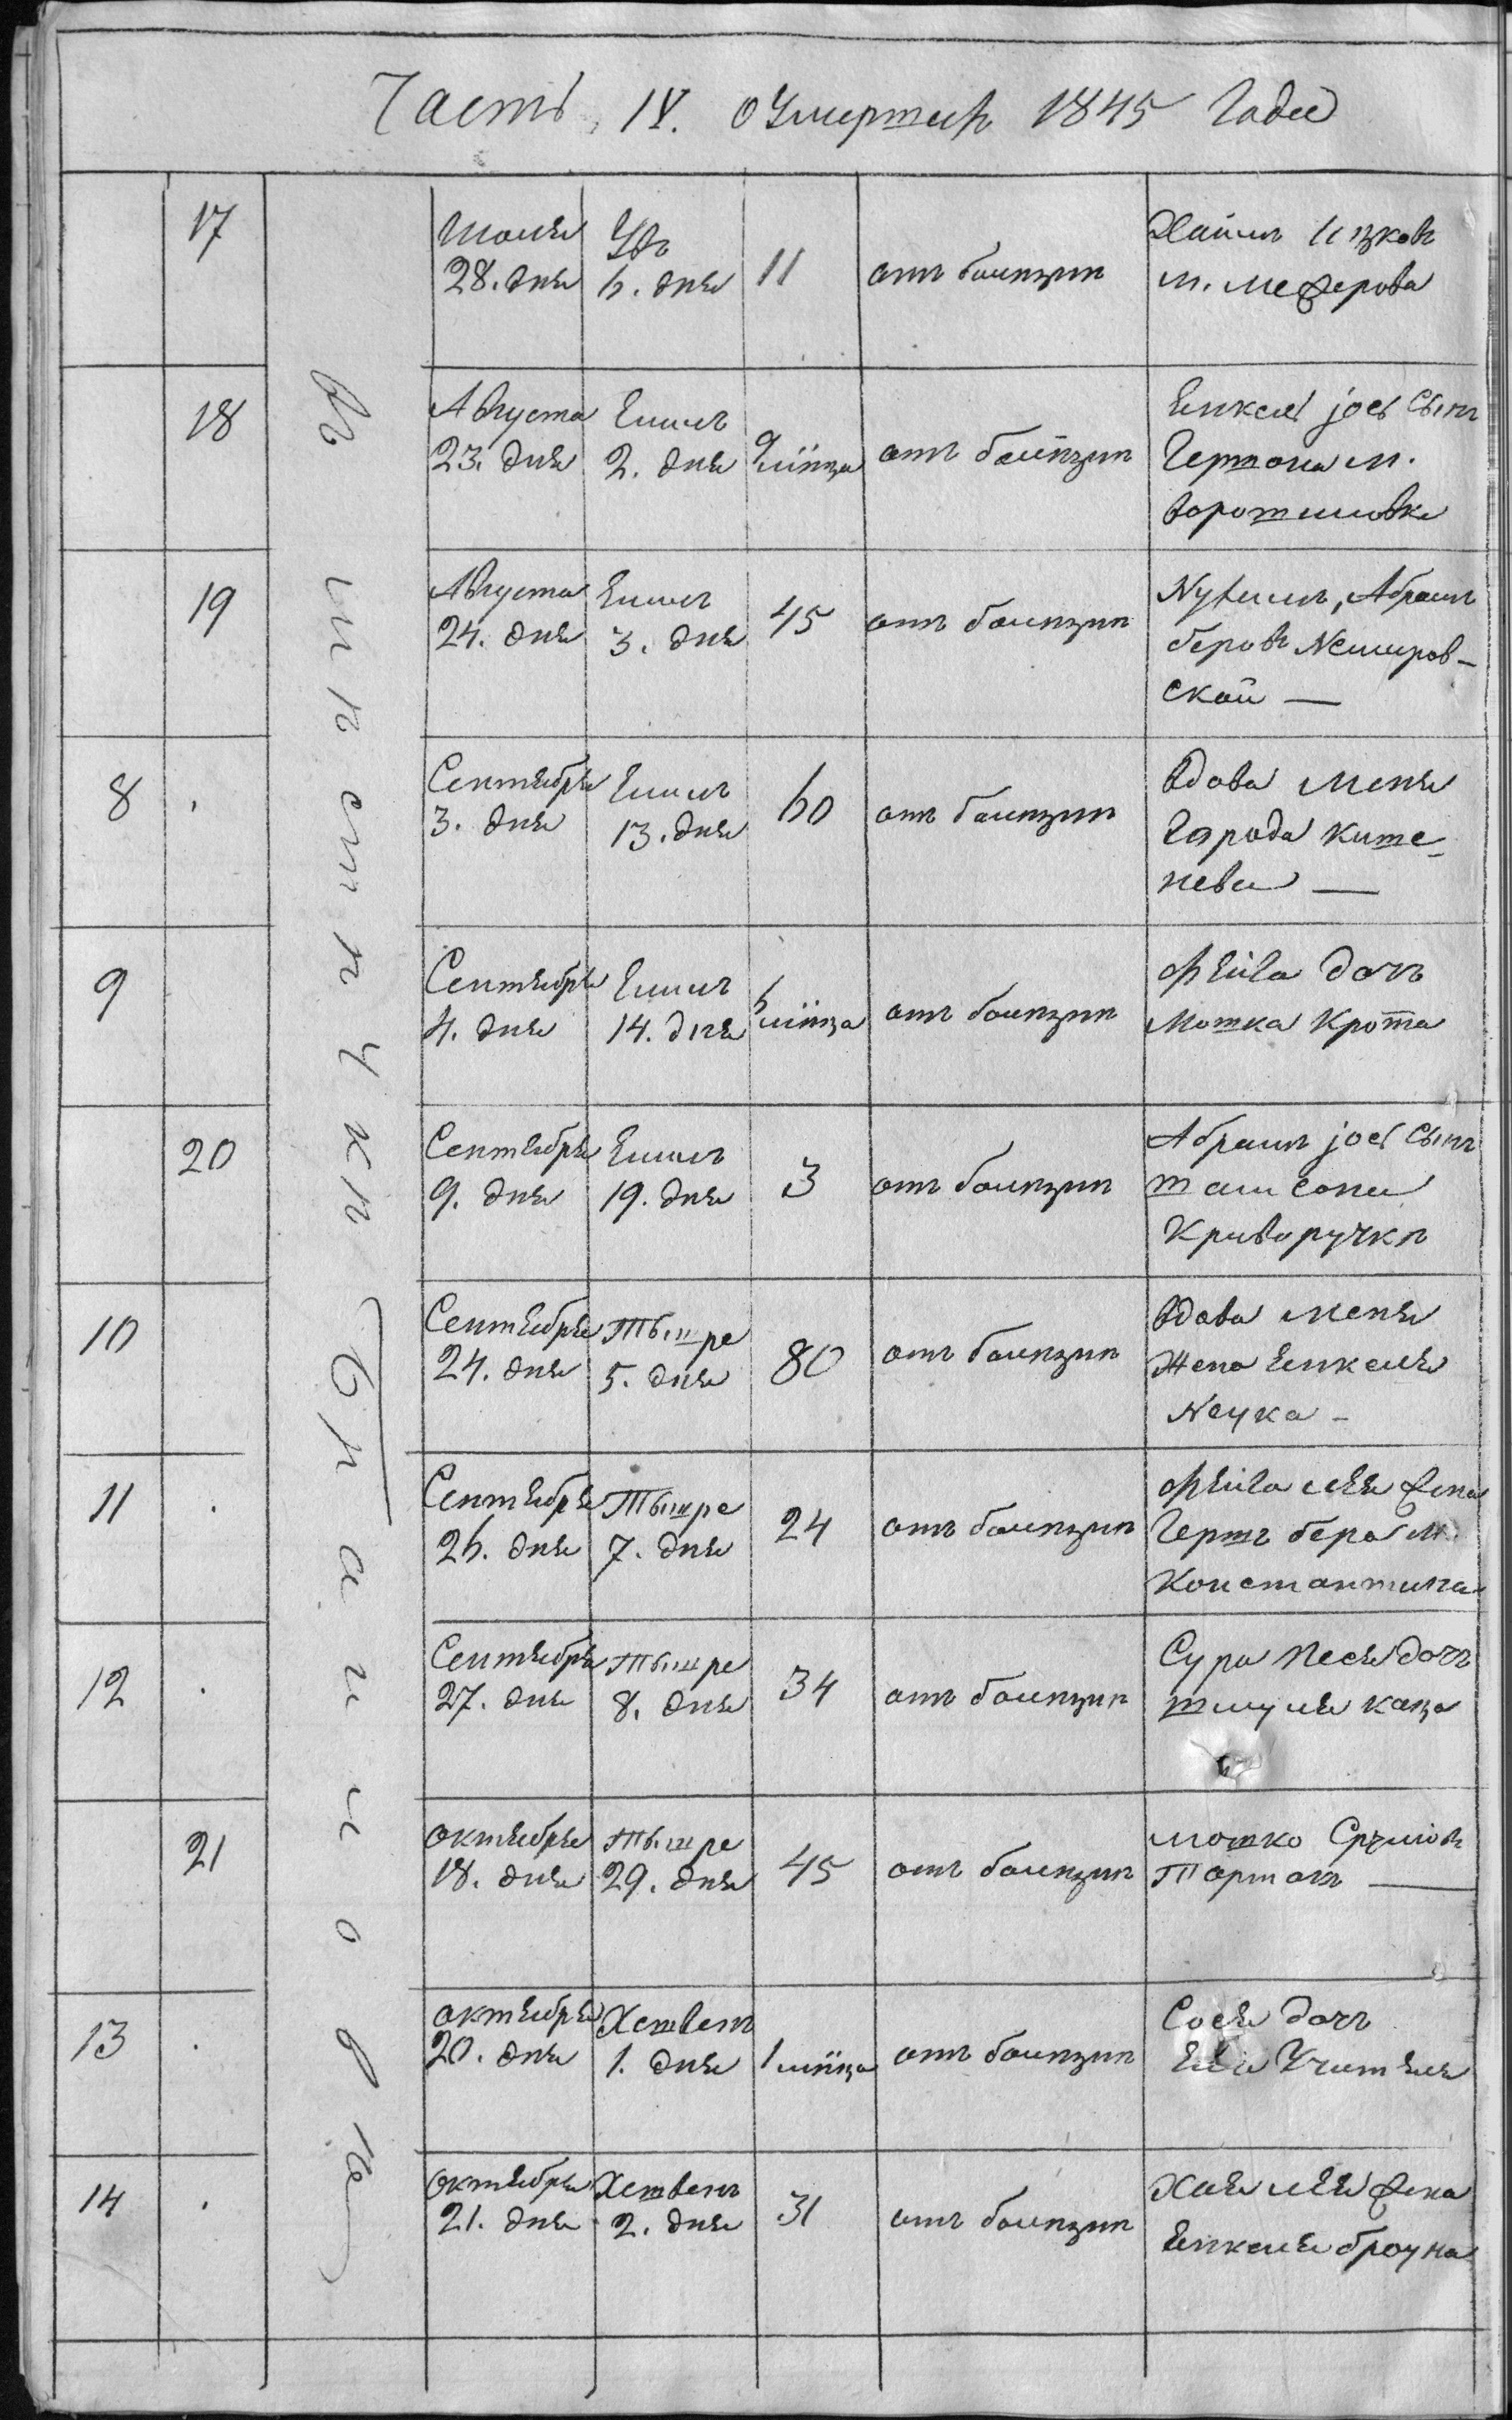 Часть IV. о Умершихъ 1845 Года
17
Июля
28. дня
Увъ
6. дня
11
отъ болезни
Хаимъ Ицковъ
м. Межерова
18
Августа
23. дня
Елилъ
2. дня
9 мѣсяца
отъ болезни
Янкель
сынъ
Гершона м.
ворошиловке
19
Августа
24. дня
Елилъ
3. дня
45
отъ болезни
Абрамъ
беровъ Немиров-
ской —
8
Сентября
3. дня
Елилъ
13. дня
60
отъ болезни
Вдова Меня
Города Кише-
нева —
9
Сентября
4. дня
Елилъ
14. дня
6 мѣсяца
отъ болезни
Фейга дочъ
Мошка Крота
20
Сентября
9. дня
Елилъ
19. дня
3
отъ болезни
Абрамъ
сынъ
шамсона
Криворучкп
10
Сентября
24. дня
Тышре
5. дня
80
отъ болезни
Вдова Меня
жена Янкеля
Паука -
11
Сентября
26. дня
Тышре
7. дня
24
отъ болезни
Фейга Лея жена
Гершъ бера м.
Константина
12
Сентября
27. дня
Тышре
8. дня
34
отъ болезни
Сура Песя дочъ
шмуля каца
21
октября
18. дня
Тышре
29. дня
45
отъ болезни
мошко Срулювъ
Тартакъ —
13
октября
20. дня
Хешвенъ
1. дня
1 мѣсяца
отъ болезни
Сося дочъ
Учителя
14
октября
21. дня
Хешвенъ
2. дня
31
отъ болезни
Хая Лея жена
Янкеля броуна
въ мистечки Браилова